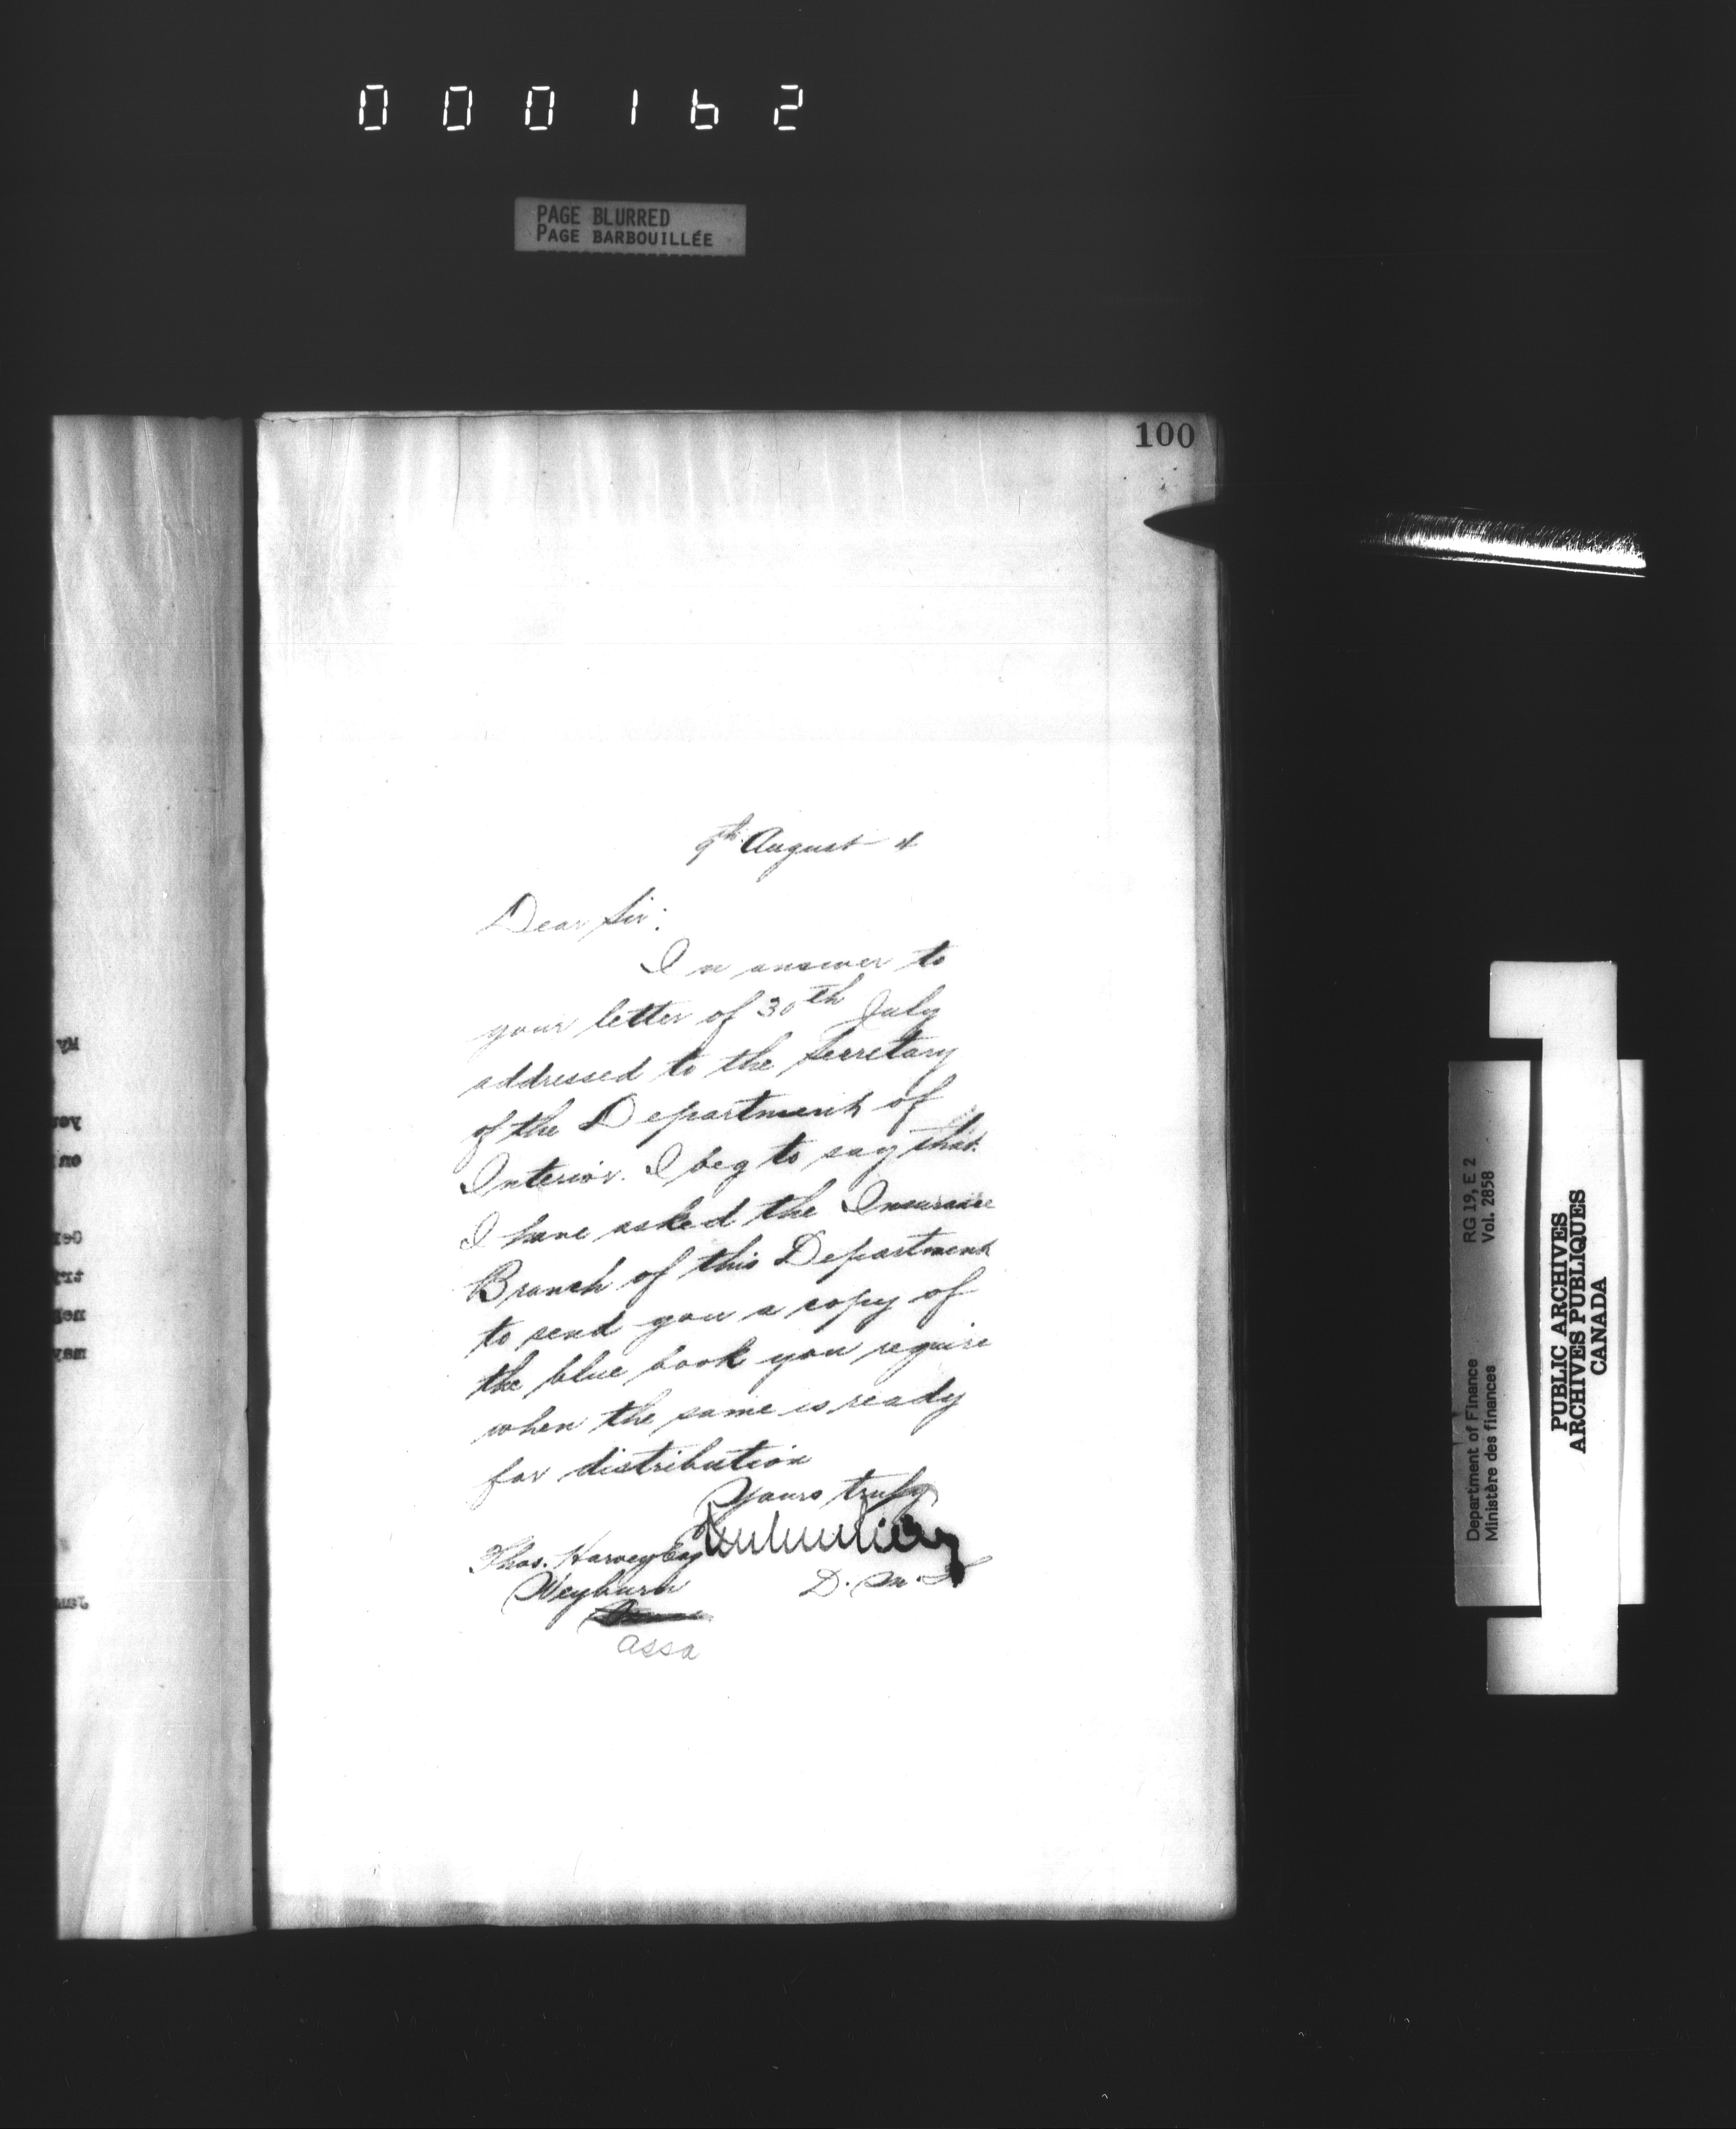 000162
PAGE BLURRED
PAGE BARBOUILLÉE
100
9th August 4
Dear Sir:
In answer to
your letter of 30th July
addressed to the Secretary
of the Department of
Interior. I beg to say that
I have asked the Insurance
Branch of this Department
to send you a copy of
the blue book you require
when the same is ready
for distribution
Yours truly
D. M. F
Thos. Harvey Esq
Weyburn
Assa
RG 19, E 2
Vol. 2858
Department of Finance
Ministère des finances
PUBLIC ARCHIVES
ARCHIVES PUBLIQUES
CANADA